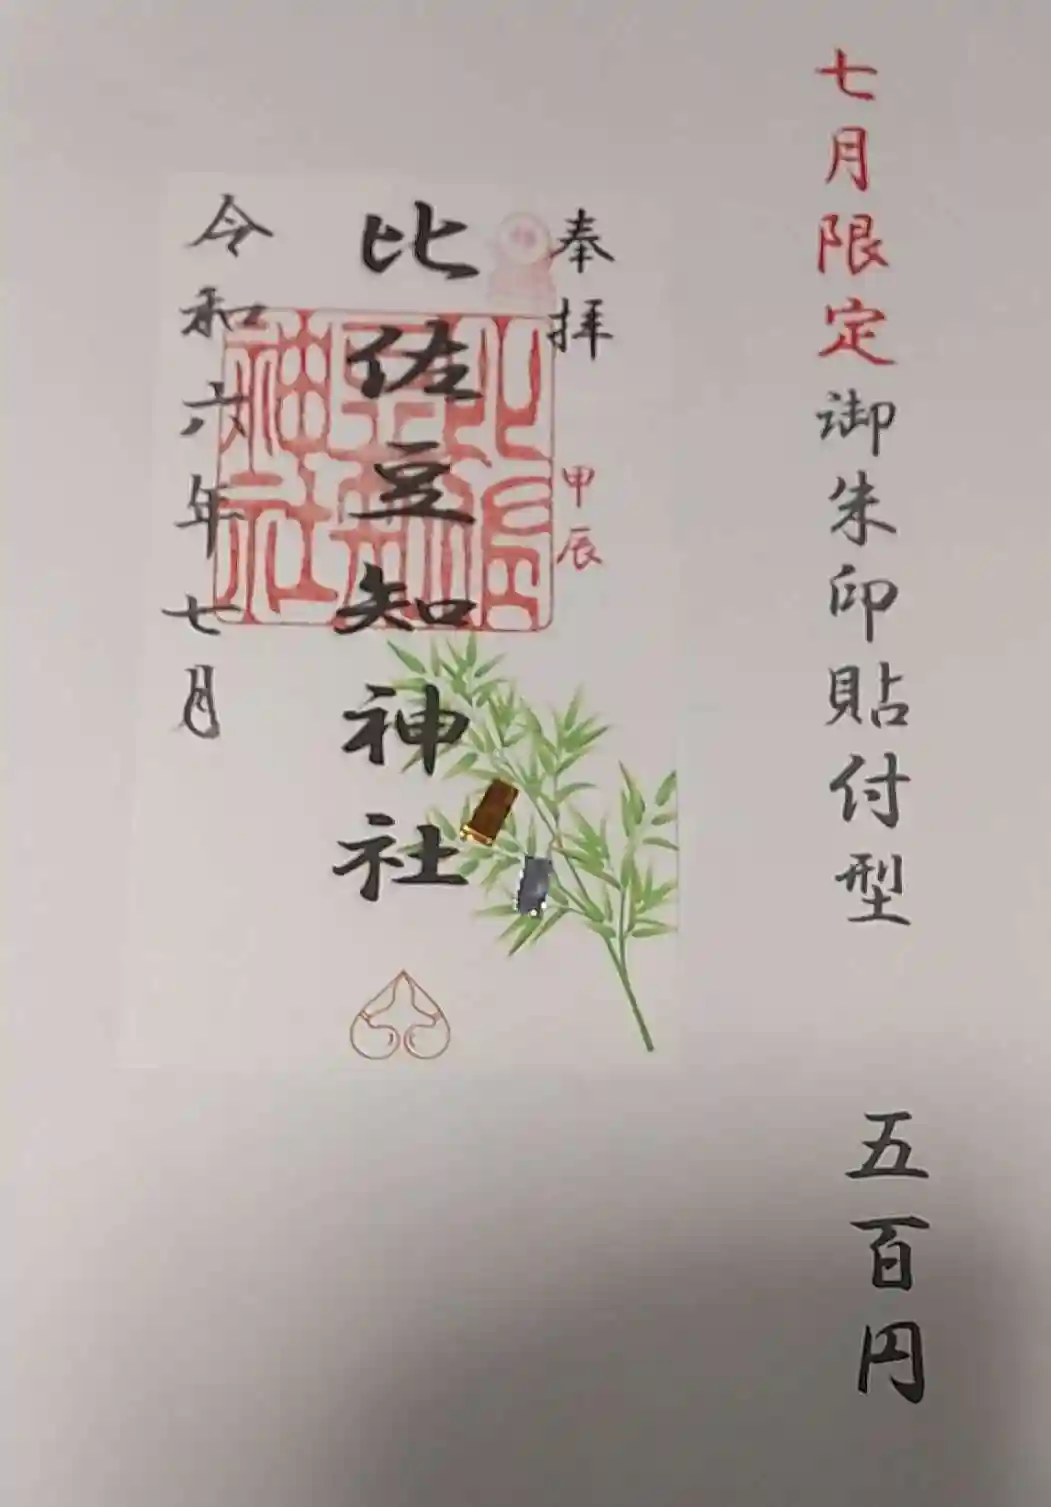 七月限定御朱印貼付型 五百円
奉拝
甲辰
比佐豆知神社
令和六年七月